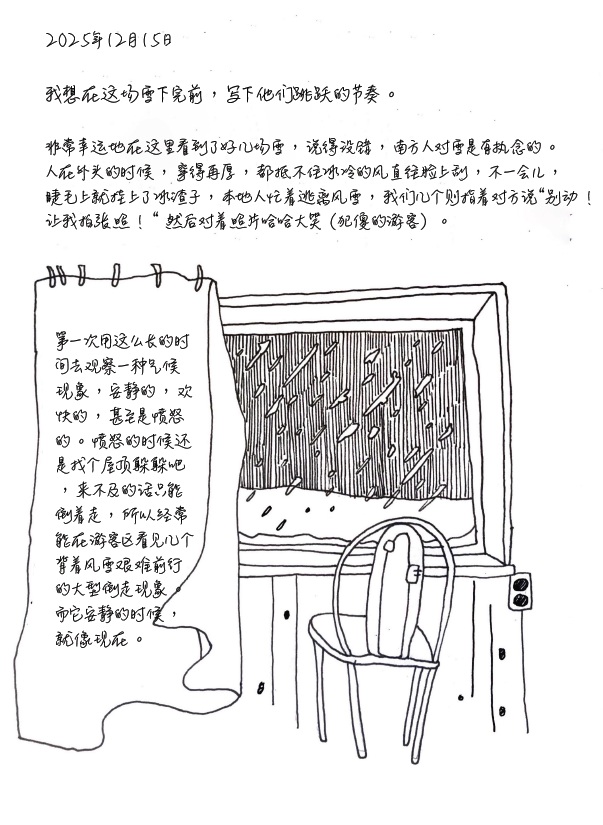 2025年12月15日
我想在这场雪下完前，写下他们跳跃的节奏。
非常幸运地在这里看到了好几场雪，说得没错，南方人对雪是有执念的。
人在外头的时候，穿得再厚，都抵不住冰冷的风直往脸上刮，不一会儿，
睫毛上就挂上了冰渣子，本地人忙着逃离风雪，我们几个则指着对方说“别动！
让我拍张照！“ 然后对着照片哈哈大笑（犯傻的游客）。
第一次用这么长的时
间去观察一种气候
现象，安静的，欢
快的，甚至是愤怒
的。愤怒的时候还
是找个屋顶躲躲吧
，来不及的话只能
倒着走，所以经常
能在游客区看见几个
背着风雪艰难前行
的大型倒走现象。
而它安静的时候，
就像现在。